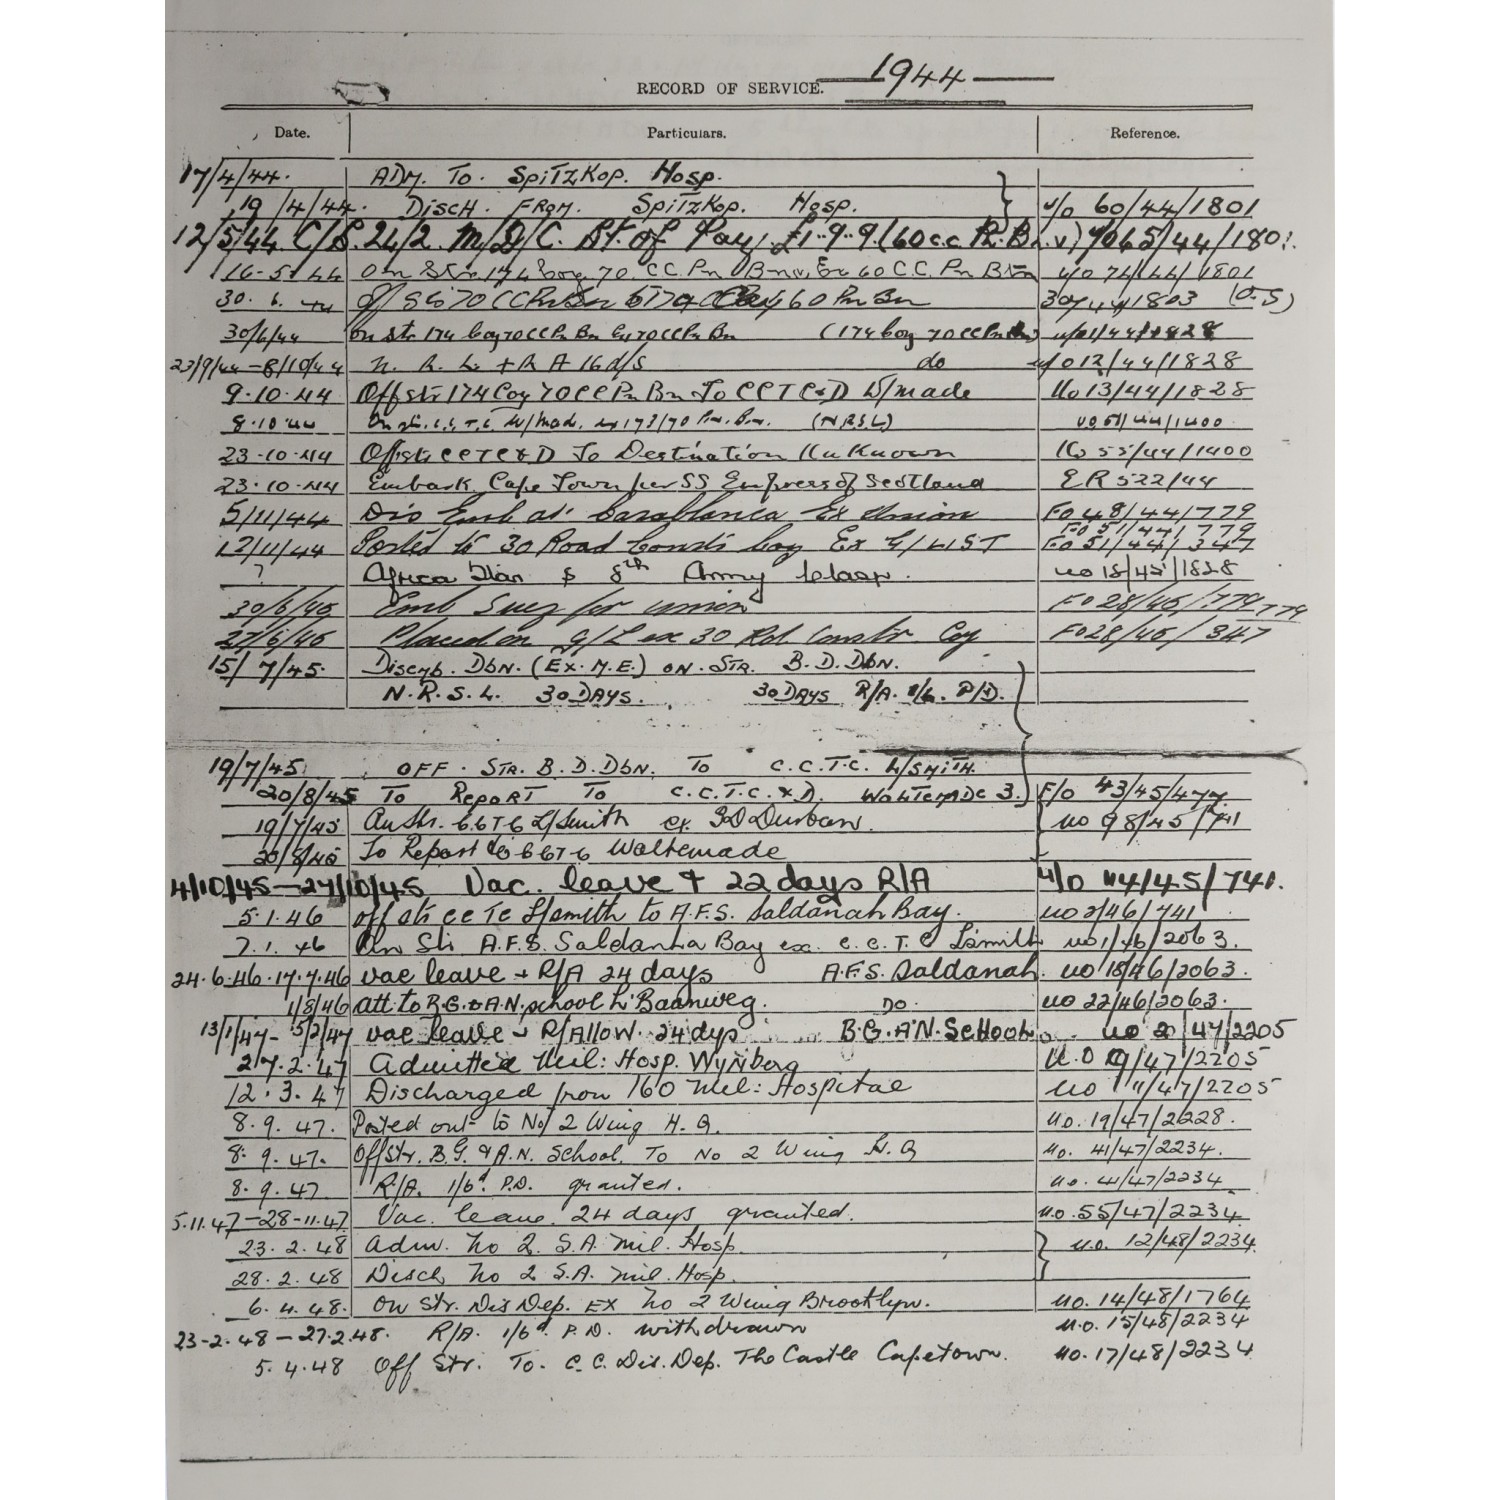 RECORD OF SERVICE. 1944
Date. Particulars. Reference.
17/4/44. ADM. To. SPITZKOP. Hosp.
19/4/44. DISCH. FROM. SPITZKOP. Hosp. u/o 60/44/1801
12/5/44 C/S. 24/2. M/D/C. St. of Pay. £1..9..9 (60 c.c. Pn. Bn. v) 65/44/1801
16-5-44 on Str 174 Coy. 70. C.C. Pn Bn v, Ex 60 C.C. Pn Btn u/o 74/44/1801
30. 6. 44 60 Pn Bn 1803 (O.S)
30/6/44 on Str 174 Coy 70 CC Pn Bn Ex 70 CC Pn Bn (174 Coy 70 CC Pn Bn) 1828
23/9/44 - 8/10/44 N. R. L. + R A 16 d/s do u/o 12/44/1828
9-10-44 Off str 174 Coy 70 CC Pn Bn To CCTC&D W/made Uo 13/44/1828
8.10.44 On str. C.C.T.C. W/Mad. ex 173/70 Pn. Bn. (N.R.S.L) uo 51/44/1400
23-10-44 Off str CCTC&D To Destination Unknown Uo 55/44/1400
23-10-44 Embark Cape Town per SS Empress of Scotland ER 522/44
5/11/44 Dis Emb at Casablanca Ex Union Fo 48/44/779
Fo 51/44/779
12/11/44 Posted to 30 Road Constr Coy Ex G/LIST Fo 51/44/347
? Africa Star & 8th Army Clasp. uo 18/45/1828
30/6/45 Emb Suez for Union Fo 28/45/779 779
27/6/45 Placed on G/L ex 30 Rd Constr Coy Fo 28/45/347
15/7/45. Disemb. Dbn. (Ex. M.E.) on. Str. B.D. Dbn.
N.R.S.L. 30 DAYS. 30 DAYS R/A. 1/6. P/D.
19/7/45 OFF. Str. B.D. Dbn. To C.C.T.C. L/SMITH.
20/8/45 To REPORT To C.C.T.C.&D. WOLTEMADE 3. F/o 43/45/477
19/7/45 On Str. C.C.T.C L/Smith ex. BD Durban. uo 98/45/741
20/8/45 To Report to CCTC Woltemade
4/10/45 - 27/10/45 Vac. leave & 22 days R/A u/o 114/45/741.
5.1.46 off str CCTC L/smith to A.F.S. Saldanah Bay. uo 2/46/741
7.1.46 On Str A.F.S. Saldanha Bay ex. C.C.T.C L/smith uo 1/46/2063.
24.6.46-17.7.46 vac leave + R/A 24 days A.F.S. Saldanah. uo 18/46/2063.
1/8/46 att to B.G. & A.N. school L'Baanweg. DO. uo 22/46/2063.
13/1/47 - 5/2/47 vac leave + R/Allow. 24 dys B.G.AN. School. uo 2/47/2205
27.2.47 Admitted Mil: Hosp. Wynberg U.O 9/47/2205
12.3.47 Discharged from 160 Mil: Hospital uo 11/47/2205
8.9.47. Posted out to No 2 Wing H.Q. uo. 19/47/2228.
8.9.47. Off Str. B.G. & A.N. School. To No 2 Wing H.Q uo. 41/47/2234.
8.9.47 R/A. 1/6d. P.D. granted. uo. 41/47/2234
5.11.47 - 28-11-47 Vac. leave 24 days granted. u.o. 55/47/2234
23.2.48 Adm. No 2 S.A. Mil. Hosp. u.o. 12/48/2234
28.2.48 Disch No 2 S.A. Mil. Hosp.
6.4.48. On Str. Dis Dep. EX No 2 Wing Brooklyn. uo. 14/48/1764
23-2.48 - 27.2.48. R/A. 1/6d. P.D. withdrawn u.o. 15/48/2234
5.4.48 Off Str. To. C.C. Dis. Dep. The Castle Capetown. uo. 17/48/2234